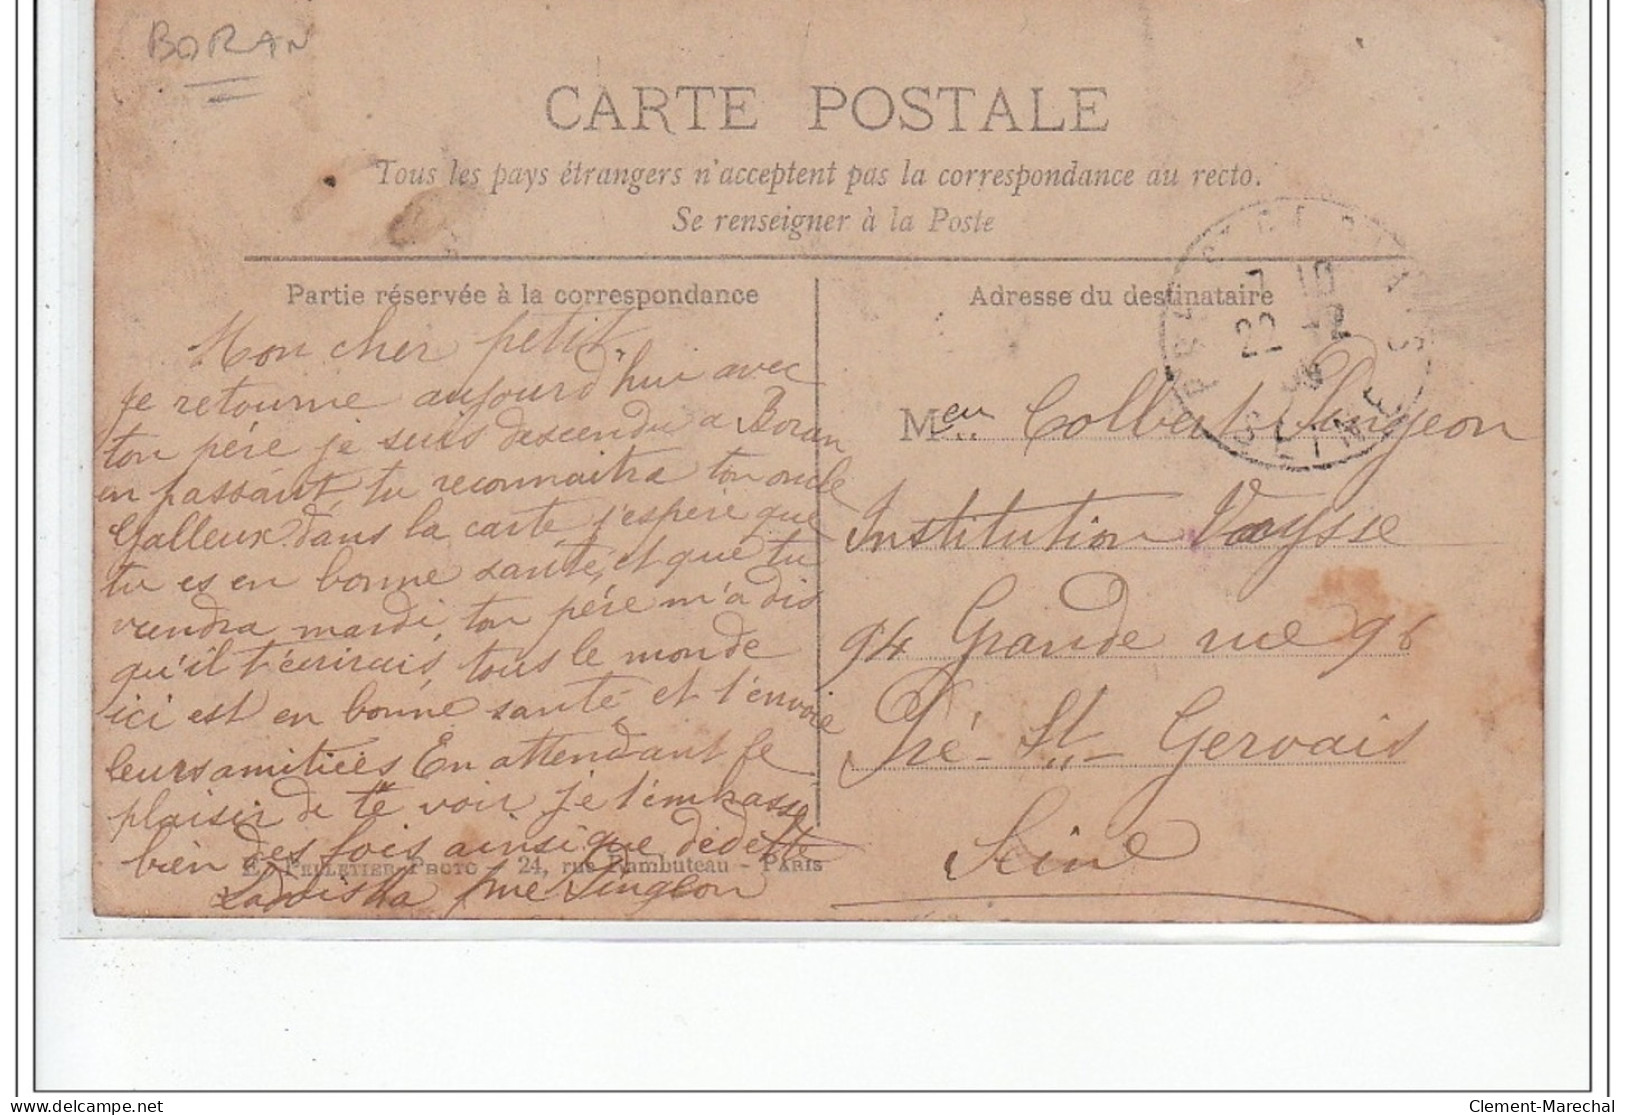 BORAN
CARTE POSTALE
Tous les pays étrangers n'acceptent pas la correspondance au recto.
Se renseigner à la Poste
Partie réservée à la correspondance
Mon cher petit,
Je retourne aujourd'hui avec
ton père je suis descendu a Boran
en passant, tu reconnaitra ton oncle
Galleux dans la carte j'espère que
tu es en bonne santé, et que tu
viendra mardi, ton père m'a dis
qu'il t'écrirais, tous le monde
ici est en bonne santé et t'envoie
leurs amitiées En attendant le
plaisir de te voir je t'embrasse
bien des fois ainsi que dedette
E. PELLETIER PHOTO - 24, rue Rambuteau - PARIS
Ladviska Singeon
Adresse du destinataire
Meur Colbert Singeon
Institution Vaysse
94 Grande rue 96
Pré-St-Gervais
Seine
7 10
22
SEINE
Clement-Marechal